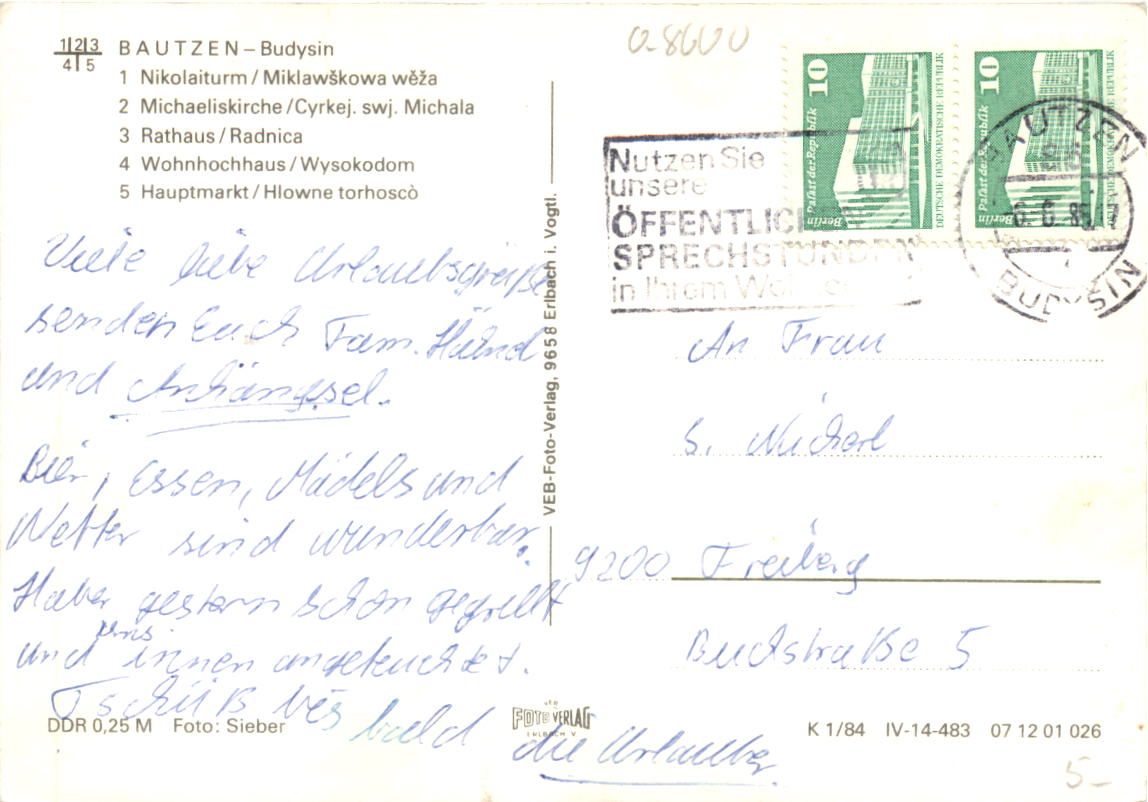 1 2 3
4 5
BAUTZEN – Budysin
1 Nikolaiturm / Miklawškowa wěža
2 Michaeliskirche / Cyrkej. swj. Michala
3 Rathaus / Radnica
4 Wohnhochhaus / Wysokodom
5 Hauptmarkt / Hłowne torhošćo
Viele liebe Urlaubsgrüße
senden Euch Fam.
und Anhängsel.
Bier, Essen, Mädels und
Wetter sind wunderbar.
Haben gestern schon gegrillt
und uns innen angefeuchtet.
Tschüß bis bald
die Urlauber
DDR 0,25 M Foto: Sieber
VEB-Foto-Verlag, 9658 Erlbach i. Vogtl.
VEB
FOTO VERLAG
ERLBACH V
10
Palast der Republik
Berlin
DEUTSCHE DEMOKRATISCHE REPUBLIK
10
Palast der Republik
Berlin
DEUTSCHE DEMOKRATISCHE REPUBLIK
Nutzen Sie
unsere
ÖFFENTLICHEN
SPRECHSTUNDEN
in Ihrem
BAUTZEN
BUDYSIN
An Frau
S.
9200 Freiberg
Buchstraße 5
K 1/84 IV-14-483 07 12 01 026
5-